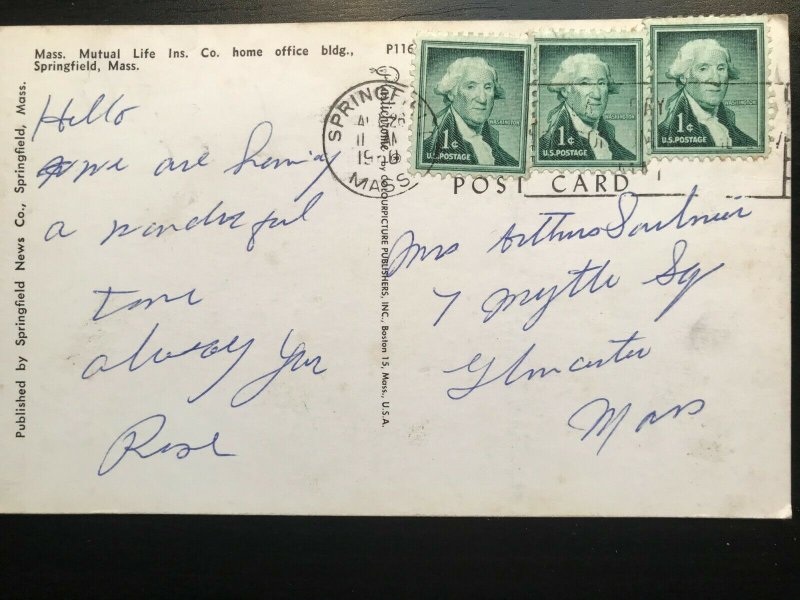 Mass. Mutual Life Ins. Co. home office bldg.,
Springfield, Mass.
P116
Published by Springfield News Co., Springfield, Mass.
Hello
we are having
a wonderful
time
alway your
Rose
by COLOURPICTURE PUBLISHERS, INC., Boston 15, Mass., U.S.A.
SPRINGF
11 AM
MASS
1¢
WASHINGTON
U.S. POSTAGE
1¢
WASHINGTON
U.S. POSTAGE
1¢
WASHINGTON
U.S. POSTAGE
POST CARD
Mrs Arthur Saulnier
7 Myttle Sq
Gloucester
Mass